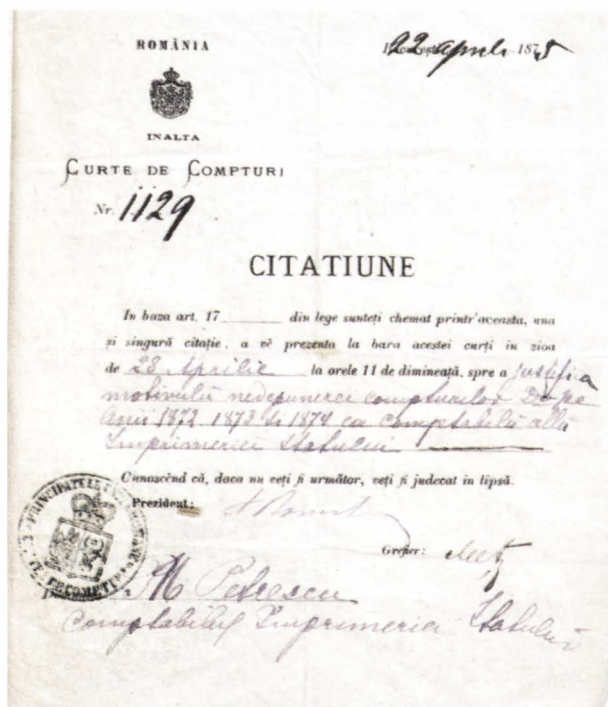 ROMÂNIA
22 april 1875
INALTA
CURTE DE COMPTURI
Nr. 1129
CITATIUNE
In baza art. 17 din lege sunteți chemat printr'aceasta, una
și singură citație, a vĕ prezenta la bara acestei curți in zioa
de 28 Aprilie la orele 11 de dimineață, spre a justifica
motivulŭ nedepunerei compturilor Dupe
Anii 1872 1873 si 1874 ca comptabilŭ allŭ
Imprimeriei Statului
Cunoscĕnd că, daca nu veți fi următor, veți fi judecat in lipsă.
Prezident:
Grefier:
M Petrescu
Comptabilul Imprimeriei Statului